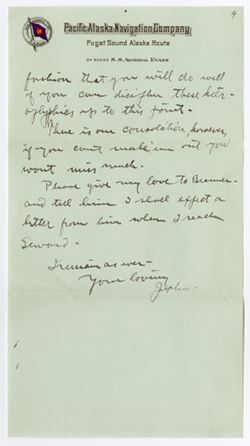 4
Pacific Alaska Navigation Company
Puget Sound Alaska Route
ON BOARD S.S. ADMIRAL EVANS
fashion that you will do well
if you can decipher these hier-
oglyphics up to this point.
There is one consolation, however,
if you can't make 'em out you
wont miss much.
Please give my love to
and tell him I shall expect a
letter from him when I reach
Seward.
I remain as ever-
Your loving
John.